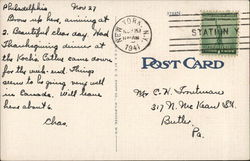 Philadelphia Nov 27
Been up here, arriving at
2. Beautiful clear day. Had
Thanksgiving dinner at
the Kochs. Cathy came down
for the week-end. Things
seem to be going very well
in Canada. Will leave
here about 6.
Chas.
NEW YORK, N.Y.
1941
STATION Y
POST CARD
Mr C. W.
317 N. McKean St.
Butler,
Pa.